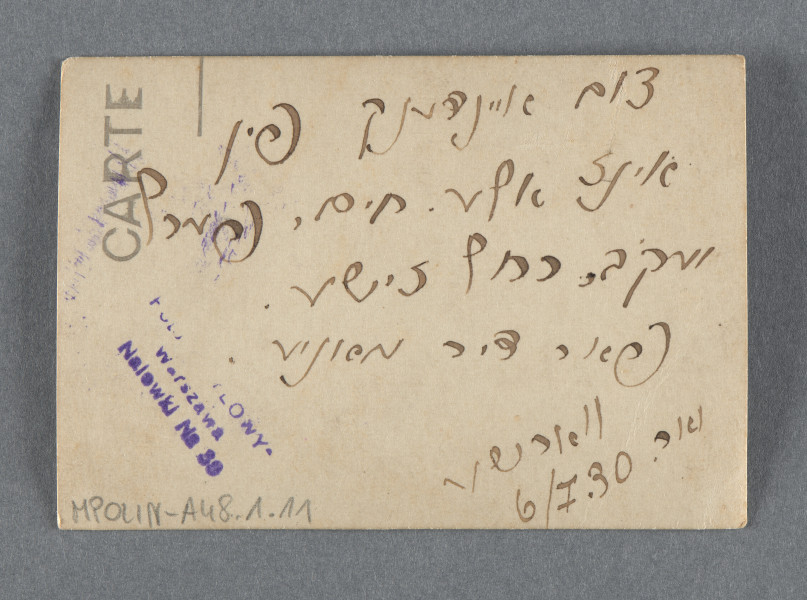 CARTE
צום איינדענק פין
אינז אלע. חיים, פערל
יעקב, רחל זישע.
פאר דיר מאניע.
ווארשע
6/7.30
Warszawa
Nalewki №
MPOLIN-A48.1.11